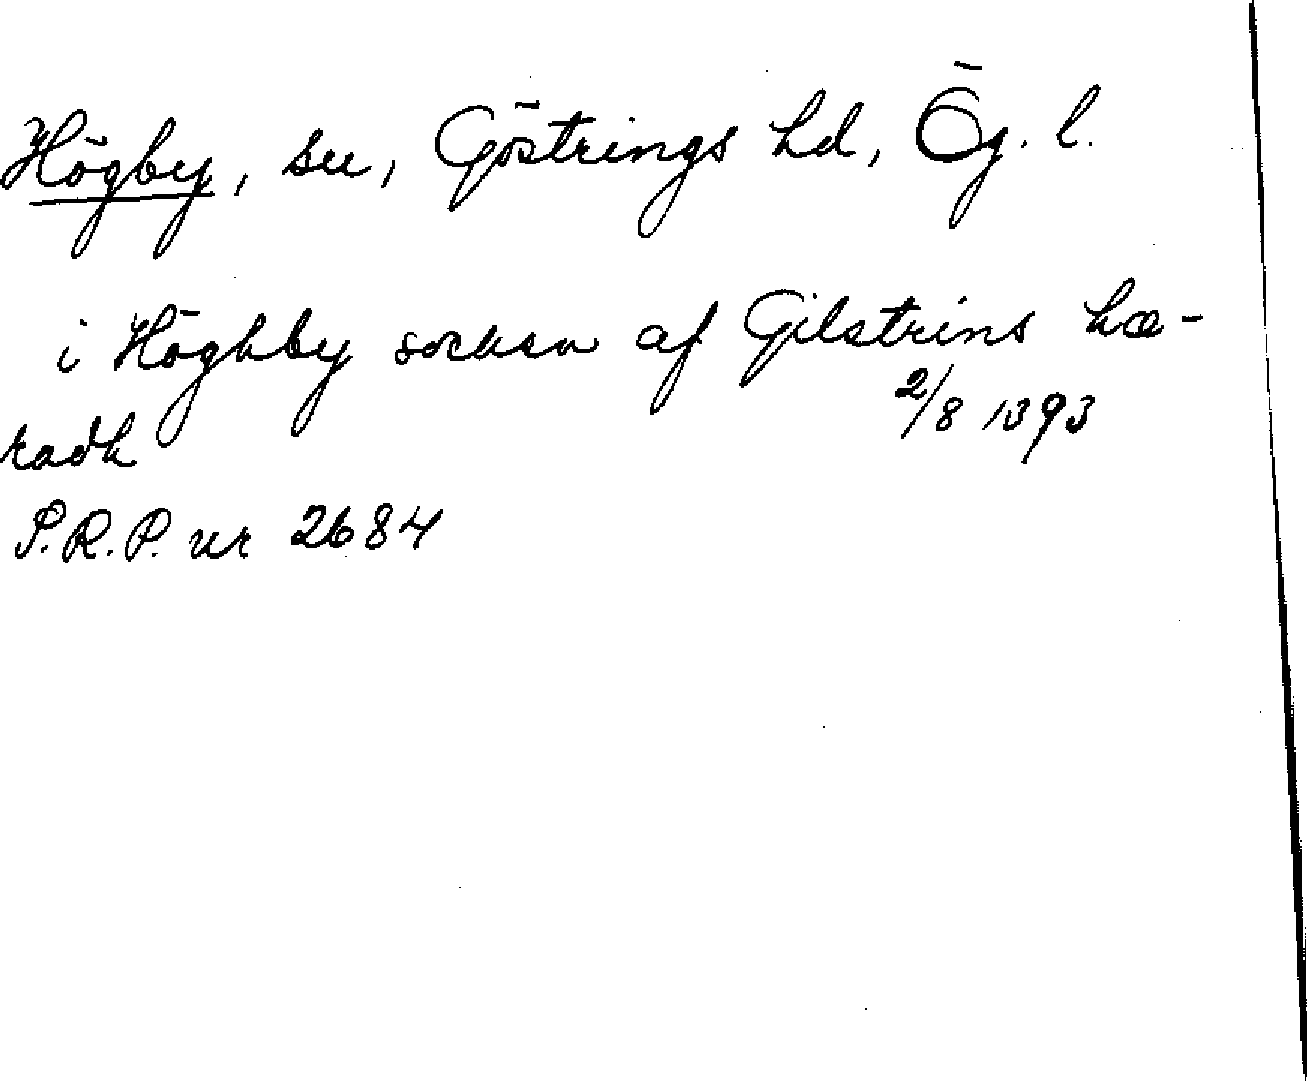 Högby, sn, Göstrings hd, Ög. l.
i Höghby soksn af Gilstrins hæ-
radh 2/8 1393
S.R.P. nr 2684